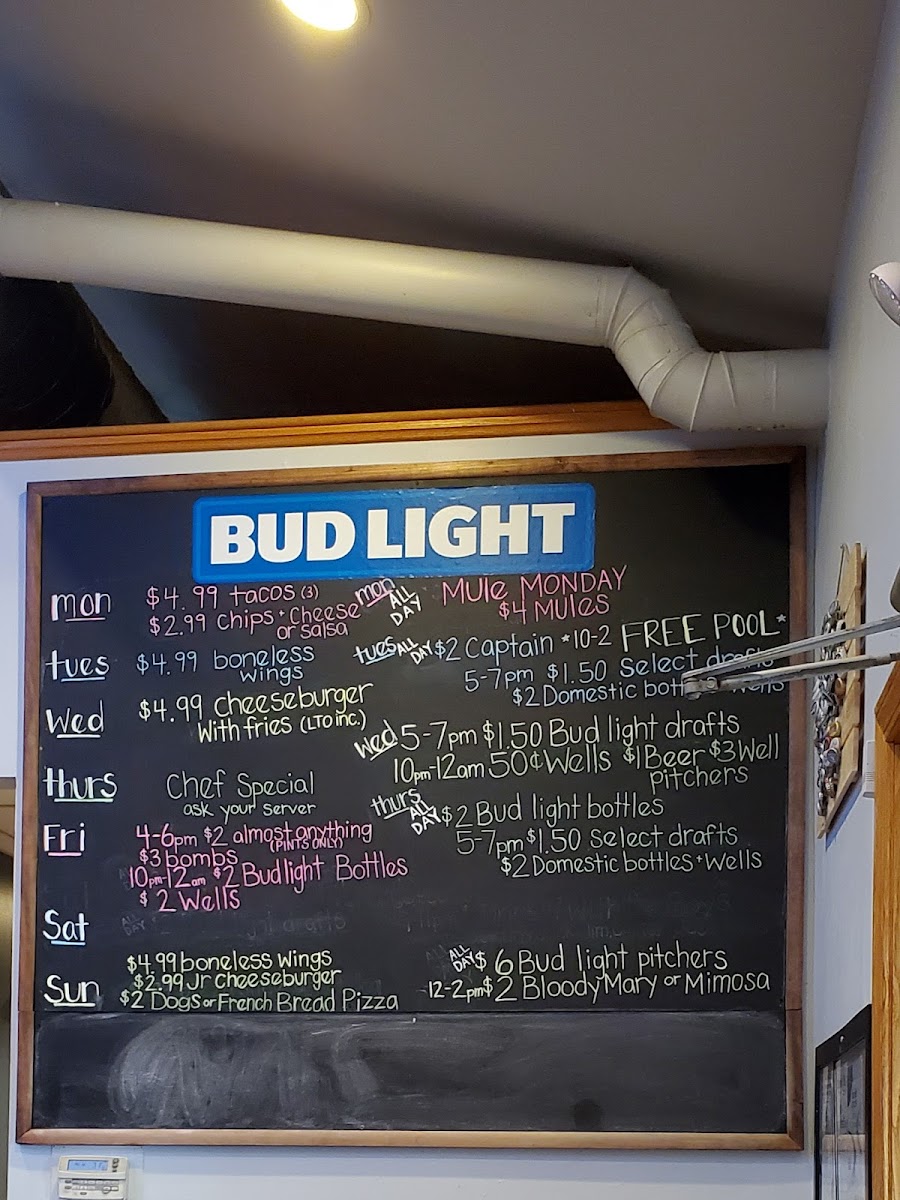 BUD LIGHT
mon $4.99 tacos (3)
$2.99 Chips + Cheese
or salsa
mon ALL DAY Mule MONDAY
$4 Mules
tues $4.99 boneless
wings
tues ALL DAY $2 Captain *10-2 FREE POOL*
5-7pm $1.50 Select drafts
$2 Domestic
Wed $4.99 Cheeseburger
With fries (LTO inc.)
Wed 5-7pm $1.50 Bud light drafts
10pm-12am 50¢ Wells $1 Beer $3 Well
pitchers
thurs Chef Special
ask your server
thurs ALL DAY $2 Bud light bottles
5-7pm $1.50 Select drafts
$2 Domestic bottles + Wells
Fri 4-6pm $2 almost anything
(PINTS ONLY)
$3 bombs
10pm-12am $2 Budlight Bottles
$2 Wells
Sat
Sun $4.99 boneless wings
$2.99 Jr Cheeseburger
$2 Dogs or French Bread Pizza
ALL DAY $6 Bud light pitchers
12-2pm $2 Bloody Mary or Mimosa